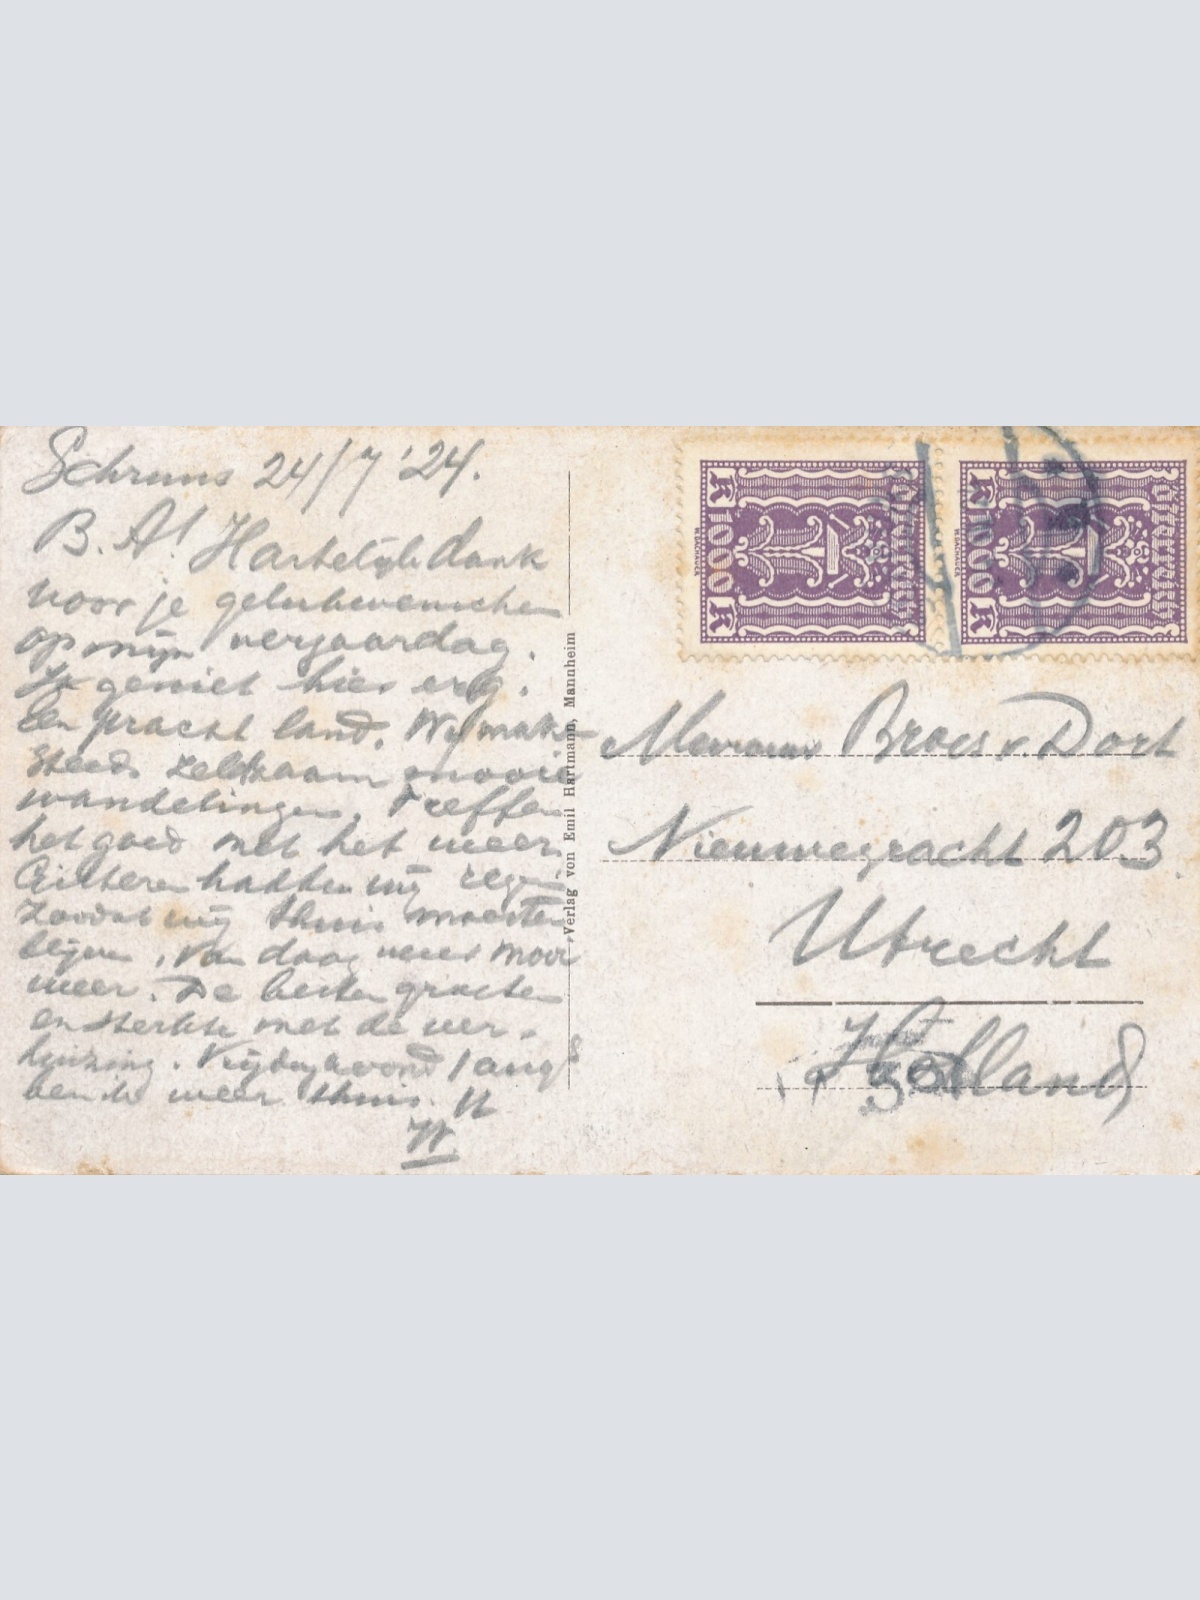 Schruns 24/7 '24.
B. A! Hartelijk dank
voor je gelukwenschen
op mijn verjaardag.
Ik geniet hier erg.
Een pracht land. Wij maken
steeds zeldzaam mooie
wandelingen. Treffen
het goed met het weer.
Gisteren hadden wij regen
zoodat wij thuis moesten
blijven. Van daag weer mooi
weer. De beste groeten
en sterkte met de ver-
huizing. Vrijdagavond 1 aug
ben ik weer thuis.
Verlag von Emil Hartmann, Mannheim
1000 K
Österreich
1000 K
Österreich
Mevrouw Broers v. Dort
Nieuwegracht 203
Utrecht
Holland
50